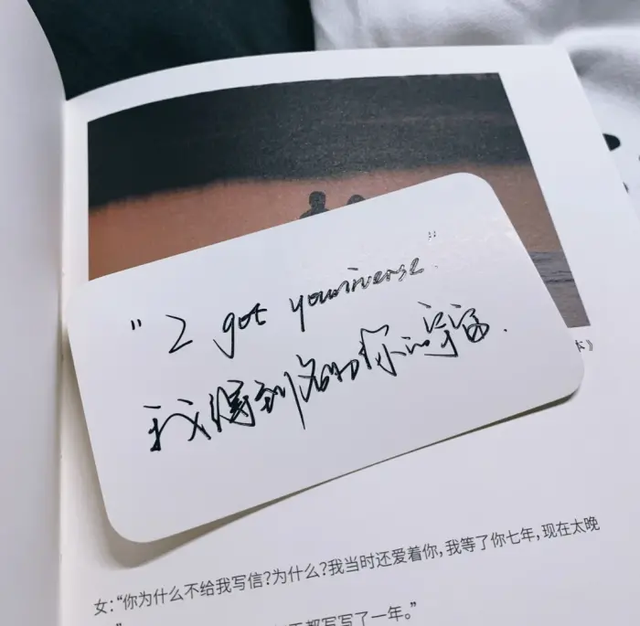 "I got youniverse"
我得到名为你的宇宙.
本》
女:“你为什么不给我写信?为什么?我当时还爱着你,我等了你七年,现在太晚
都写写了一年。”